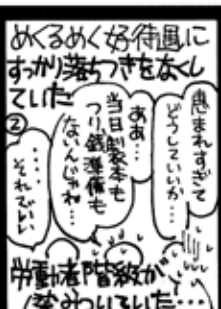 めくるめく好待遇に
すっかり落ちつきをなくし
ていた
恵まれすぎて
どうしていいか…
ああ…
当日製本も
つり銭準備も
ないんじゃね…
②
・・・・
それでいい
労働者階級が
染みついていた…